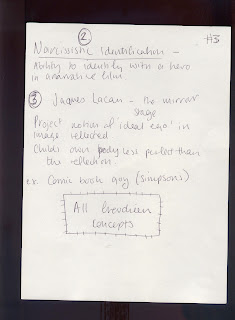 ② #3
Narcissistic identification –
Ability to identify with a hero
in a narrative film.
③ Jaques Lacan – the mirror
stage
Project notion of 'ideal ego' in
image reflected
Childs own body less perfect than
the reflection.
ex. Comic book guy (simpsons)
All Freudian
Concepts